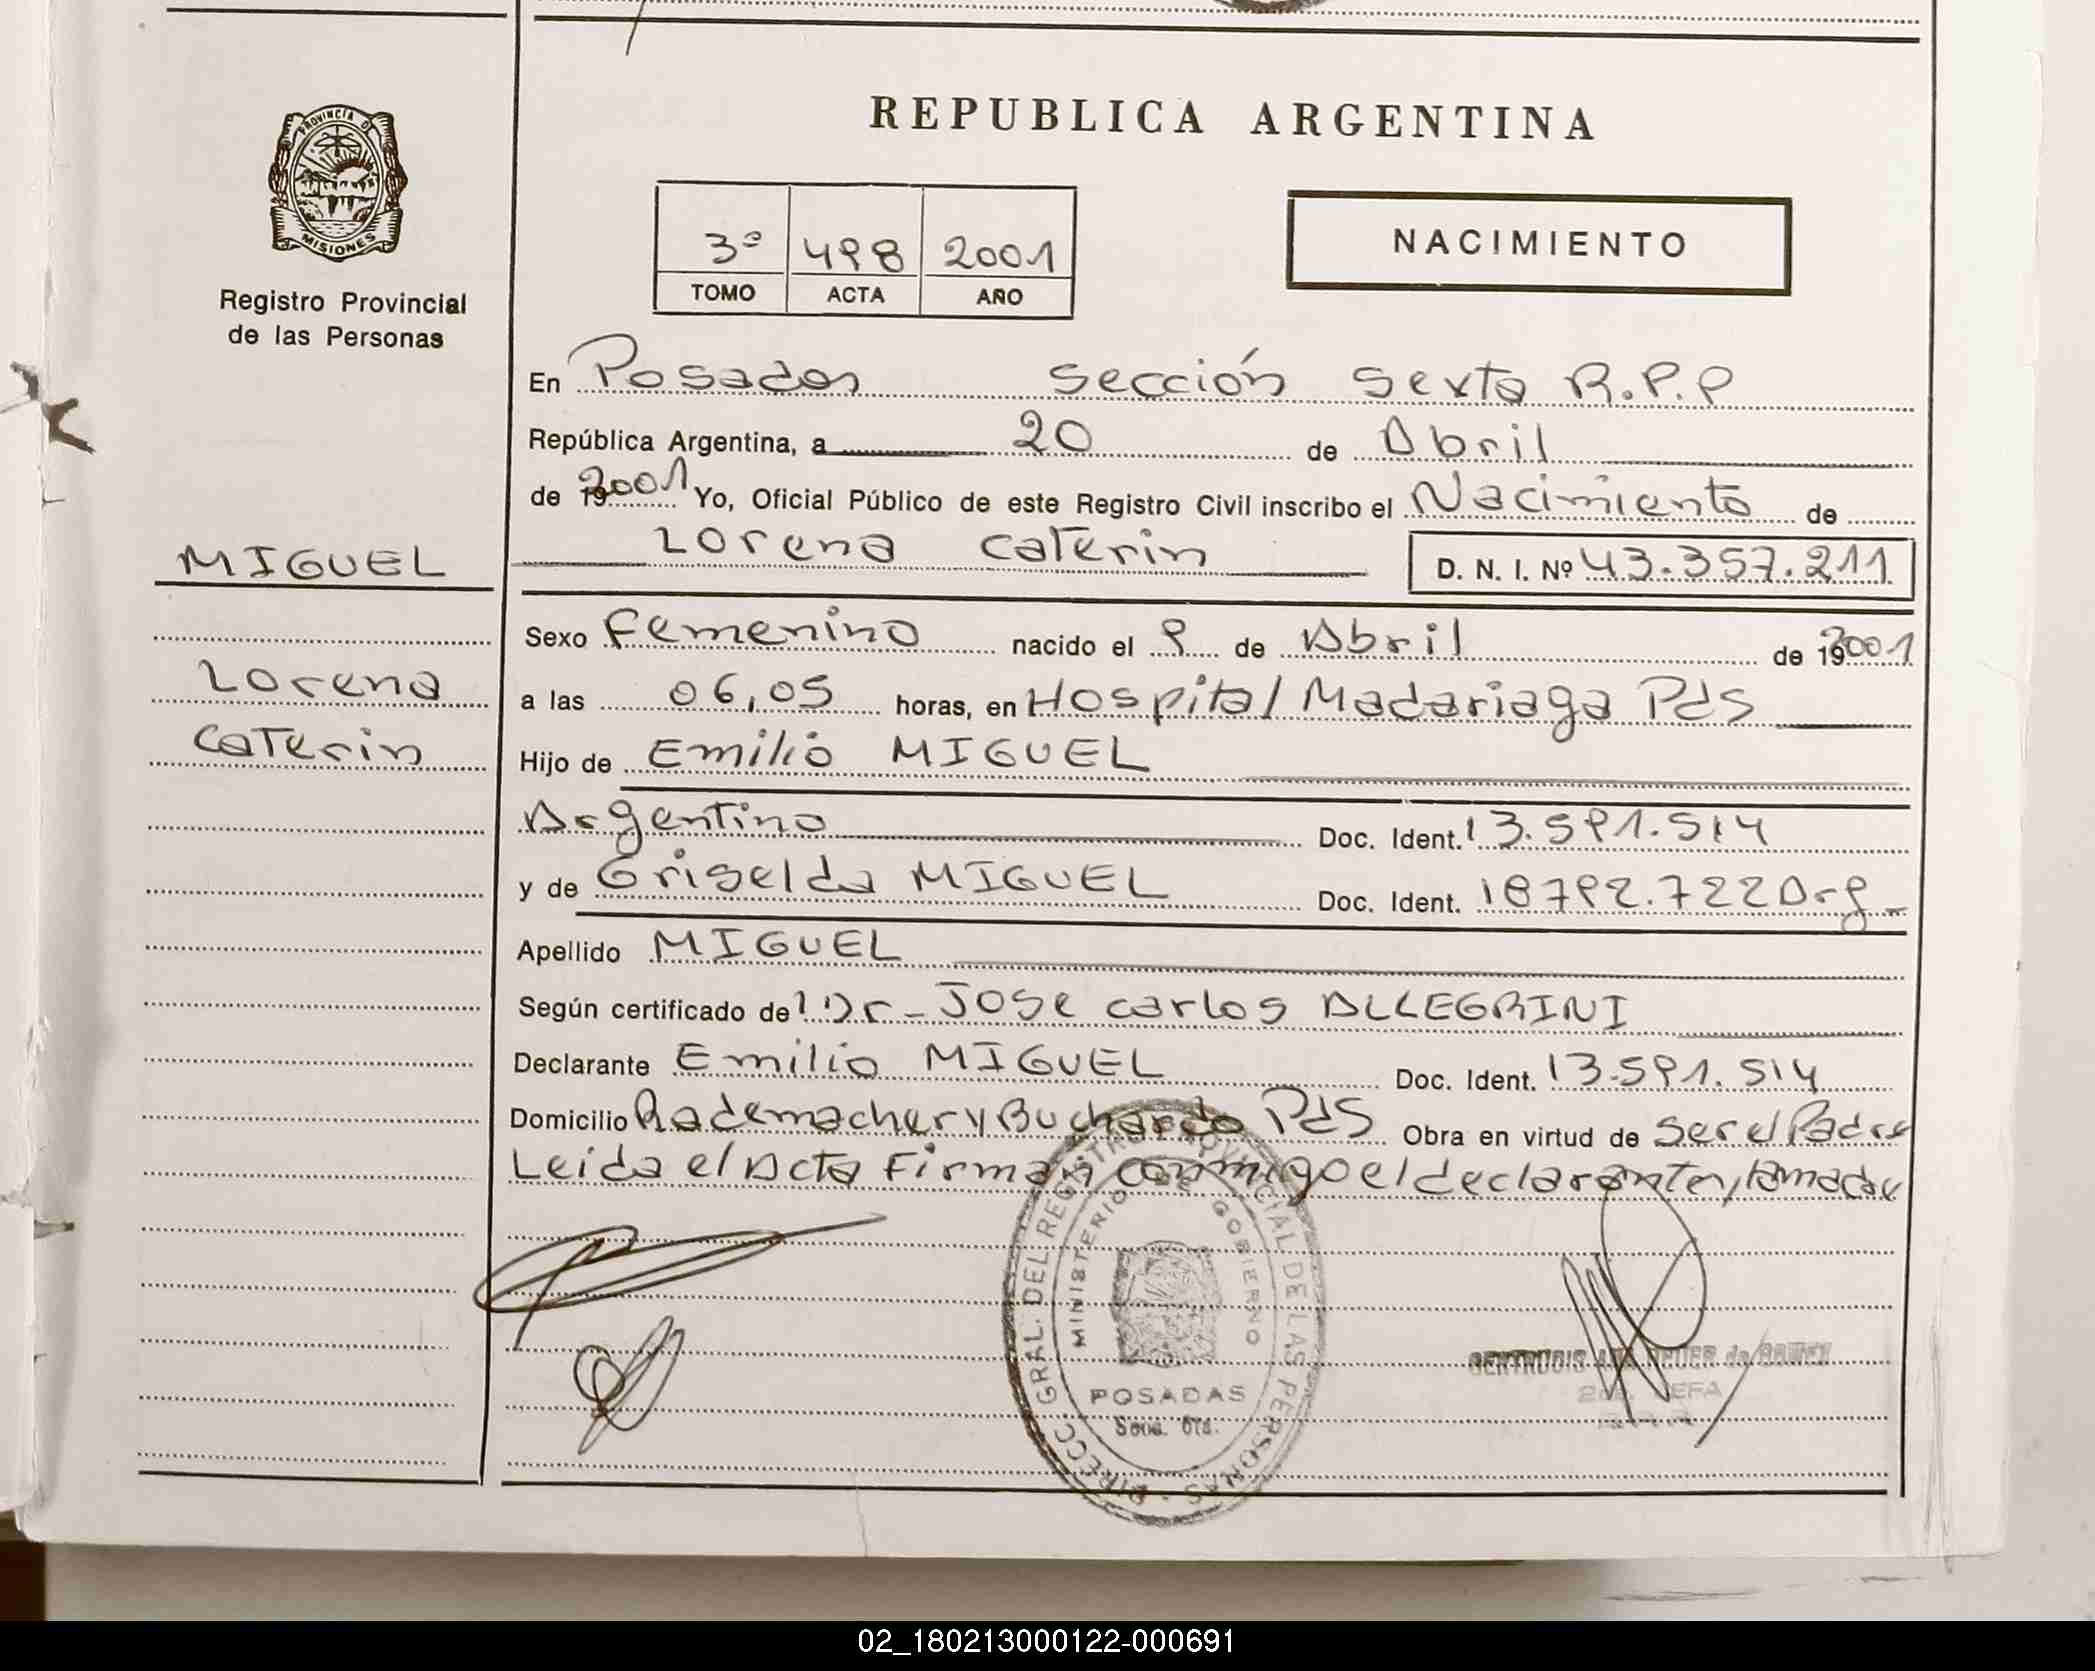 REPUBLICA ARGENTINA
PROVINCIA D
MISIONES
Registro Provincial
de las Personas
3º 498 2001
TOMO ACTA AÑO
NACIMIENTO
En Posadas Sección Sexta R.P.P
República Argentina, a 20 de Abril
de 2001 Yo, Oficial Público de este Registro Civil inscribo el Nacimiento de
Lorena Caterin D. N. I. Nº 43.357.211
MIGUEL
Lorena
Caterin
Sexo Femenino nacido el 9 de Abril de 2001
a las 06,05 horas, en Hospital Madariaga Pds
Hijo de Emilio MIGUEL
Argentino Doc. Ident. 13.591.514
y de Griselda MIGUEL Doc. Ident. 18792.722 Arg_
Apellido MIGUEL
Según certificado de Dr_ Jose Carlos ALLEGRINI
Declarante Emilio MIGUEL Doc. Ident. 13.591.514
Domicilio Rademacher y Buchardo Pds Obra en virtud de Ser el Padre
Leida el Acta Firman conmigo el declarante, la madre
DIRECC. GRAL. DEL REGISTRO PROVINCIAL DE LAS PERSONAS
MINISTERIO DE GOBIERNO
POSADAS
GERTRUDIS
JEFA
02_180213000122-000691